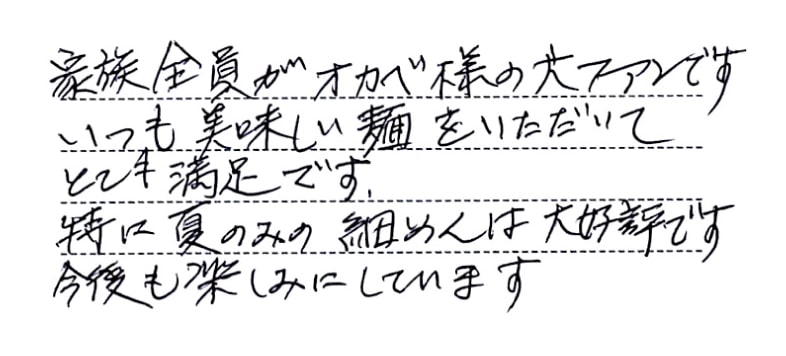 家族全員がオカベ様の大ファンです
いつも美味しい麺をいただいて
とても満足です。
特に夏のみの細めんは大好評です
今後も楽しみにしています